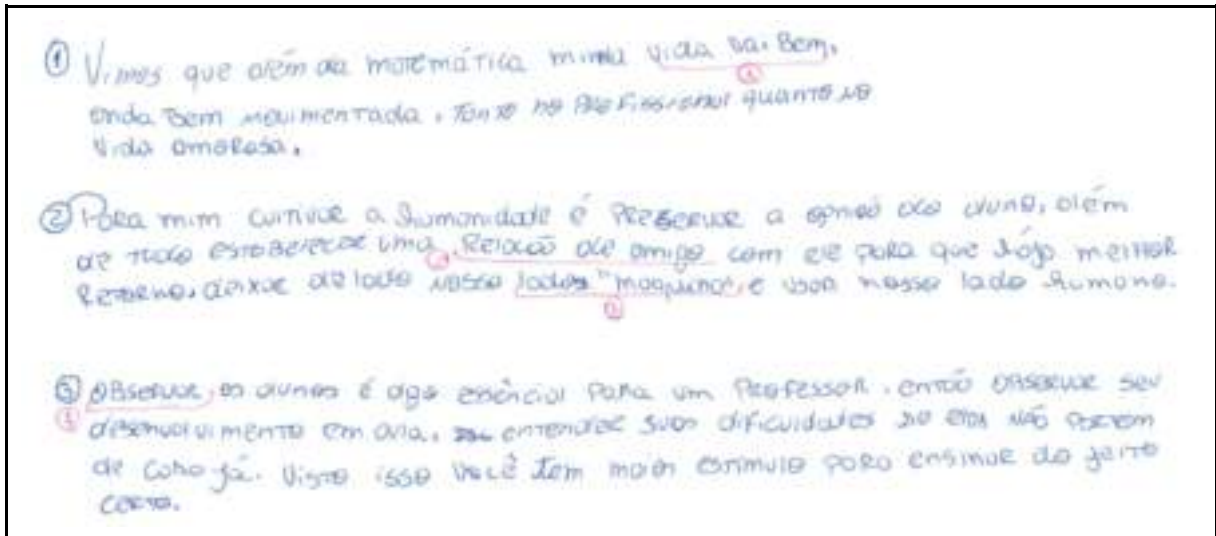 ① Vimos que além da matemática minha vida vai Bem,
①
anda Bem movimentada, Tanto no Profissional quanto na
vida amorosa.
② Para mim cultivar a humanidade é Preservar a opinião do aluno, além
de tudo estabelecer uma Relação de amigo com ele para que haja melhor
①
Retorno, deixar de lado nosso lado "maquina", e usar nosso lado humano.
②
③ OBservar, os alunos é algo essêncial Para um Professor, então observar seu
① desenvolvimento em aula, entender suas dificuldades se eles não
de cara já. Visto isso você tem mais estimulo para ensinar do jeito
certo.